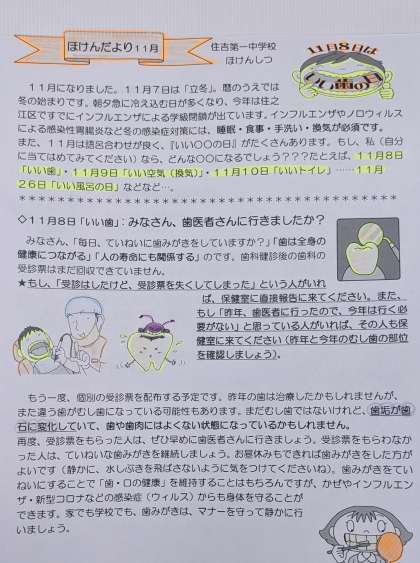 ほけんだより11月
住吉第一中学校
ほけんしつ
11月8日は
いい歯の日
11月になりました。11月7日は「立冬」。暦のうえでは
冬の始まりです。朝夕急に冷え込む日が多くなり、今年は住之
江区ですでにインフルエンザによる学級閉鎖が出ています。インフルエンザやノロウィルス
による感染性胃腸炎など冬の感染症対策には、睡眠・食事・手洗い・換気が必須です。
また、11月は語呂合わせが良く、『いい〇〇の日』がたくさんあります。もし、私（自分
に当てはめてみてください）なら、どんな〇〇になるでしょう????たとえば、11月8日
「いい歯」・11月9日「いい空気（換気）」・11月10日「いいトイレ」……11月
26日「いい風呂の日」などなど…。
◇11月8日「いい歯」：みなさん、歯医者さんに行きましたか？
みなさん、「毎日、ていねいに歯みがきをしていますか？」「歯は全身の
健康につながる」「人の寿命にも関係する」のです。歯科健診後の歯科の
受診票はまだ回収できていません。
★もし、「受診はしたけど、受診票を失くしてしまった」という人がいれ
ば、保健室に直接報告に来てください。また、
もし「昨年、歯医者に行ったので、今年は行く必
要がない」と思っている人がいれば、その人も保
健室に来てください（昨年と今年のむし歯の部位
を確認しましょう）。
もう一度、個別の受診票を配布する予定です。昨年の歯は治療したかもしれませんが、
また違う歯がむし歯になっている可能性もあります。まだむし歯ではないけれど、歯垢が歯
石に変化していて、歯や歯肉にはよくない状態になっているかもしれません。
再度、受診票をもらった人は、ぜひ早めに歯医者さんに行きましょう。受診票をもらわなか
った人は、ていねいな歯みがきを継続しましょう。お昼休みもできれば歯みがきをした方が
よいです（静かに、水しぶきを飛ばさないように気をつけてくださいね）。歯みがきをてい
ねいにすることで「歯・口の健康」を維持することはもちろんですが、かぜやインフルエン
ザ・新型コロナなどの感染症（ウィルス）からも身体を守ることが
できます。家でも学校でも、歯みがきは、マナーを守って静かに行
いましょう。